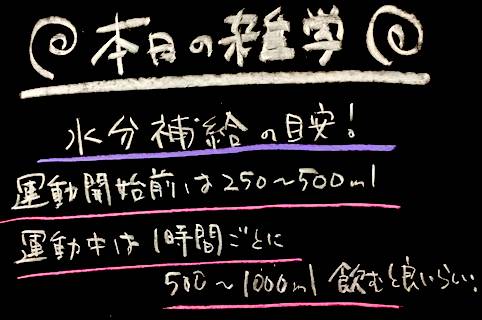 本日の雑学
水分補給の目安！
運動開始前は250〜500ml
運動中は1時間ごとに
500〜1000ml 飲むと良いらしい。